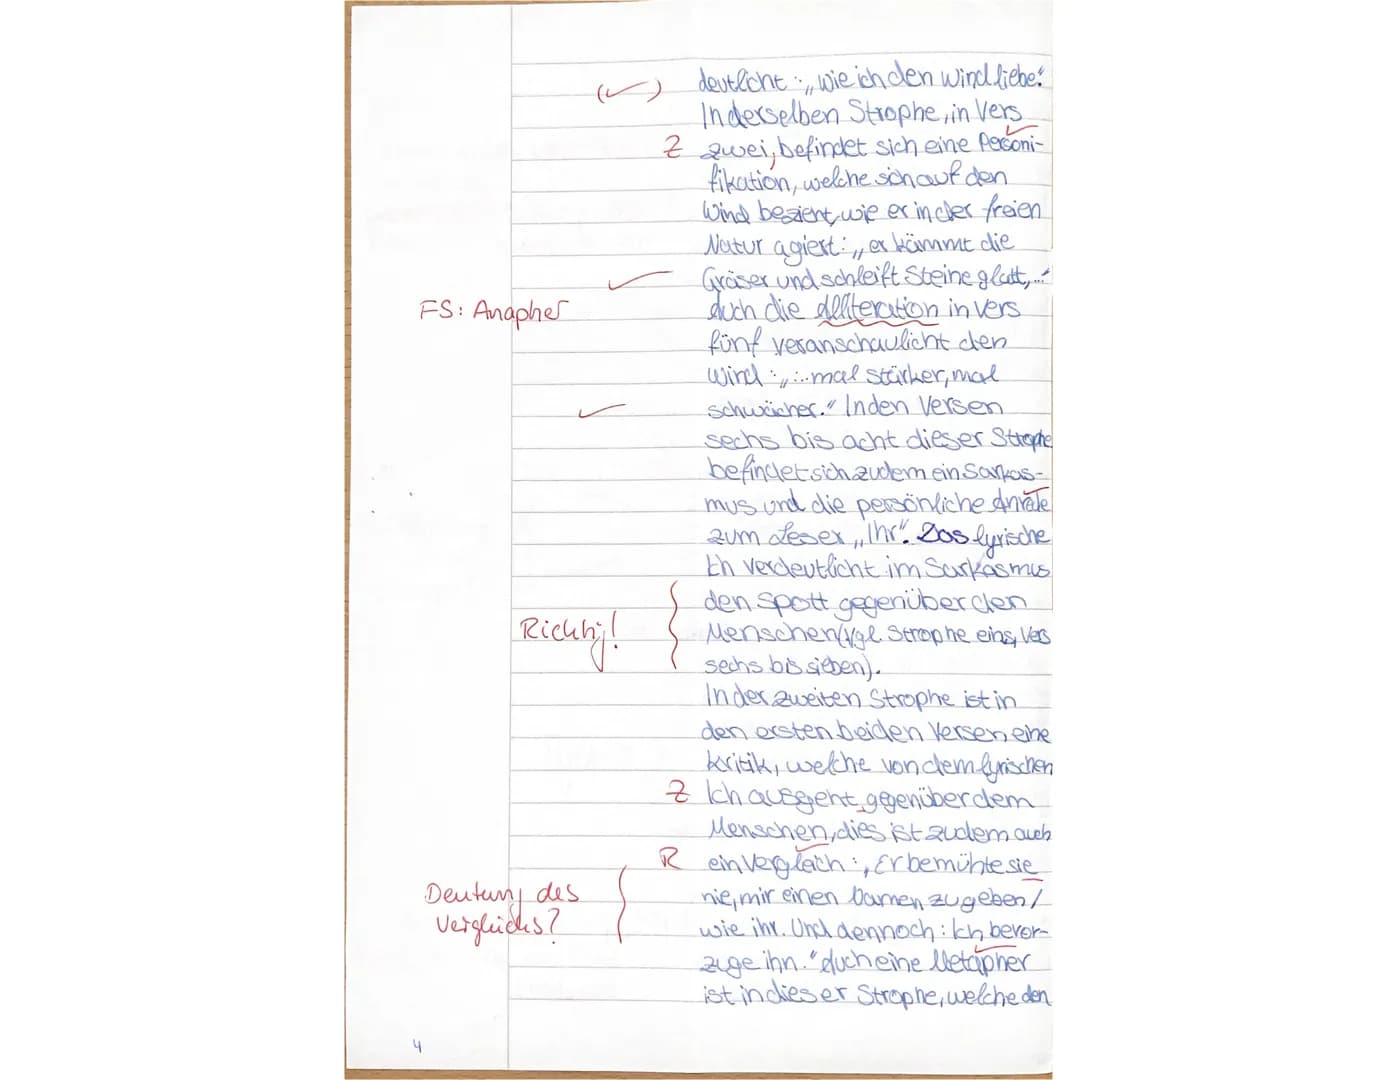 deutlicht: „wie ich den Wind liebe."
(✓)
In derselben Strophe, in Vers
Z zwei, befindet sich eine Personi-
fikation, welche sich auf den
Wind bezieht, wie er in der freien
Natur agiert: „er kämmt die
Gräser und schleift Steine glatt,..."
FS: Anapher
Auch die Alliteration in Vers
fünf veranschaulicht den
Wind: „...mal stärker, mal
schwächer." In den Versen
sechs bis acht dieser Strophe
befindet sich zudem ein Sarkas-
mus und die persönliche Anrede
zum Leser „Ihr". Das lyrische
Ich verdeutlicht im Sarkasmus
den Spott gegenüber den
Richtig!
Menschen (vgl. Strophe eins, Vers
sechs bis sieben).
In der zweiten Strophe ist in
den ersten beiden Versen eine
Kritik, welche von dem lyrischen
Z Ich ausgeht, gegenüber dem
Menschen, dies ist zudem auch
R ein Vergleich: „Er bemühte sie
Deutung des
nie, mir einen Namen zu geben /
Vergleichs?
wie ihr. Und dennoch: Ich bevor-
zuge ihn." Auch eine Metapher
ist in dieser Strophe, welche den
4